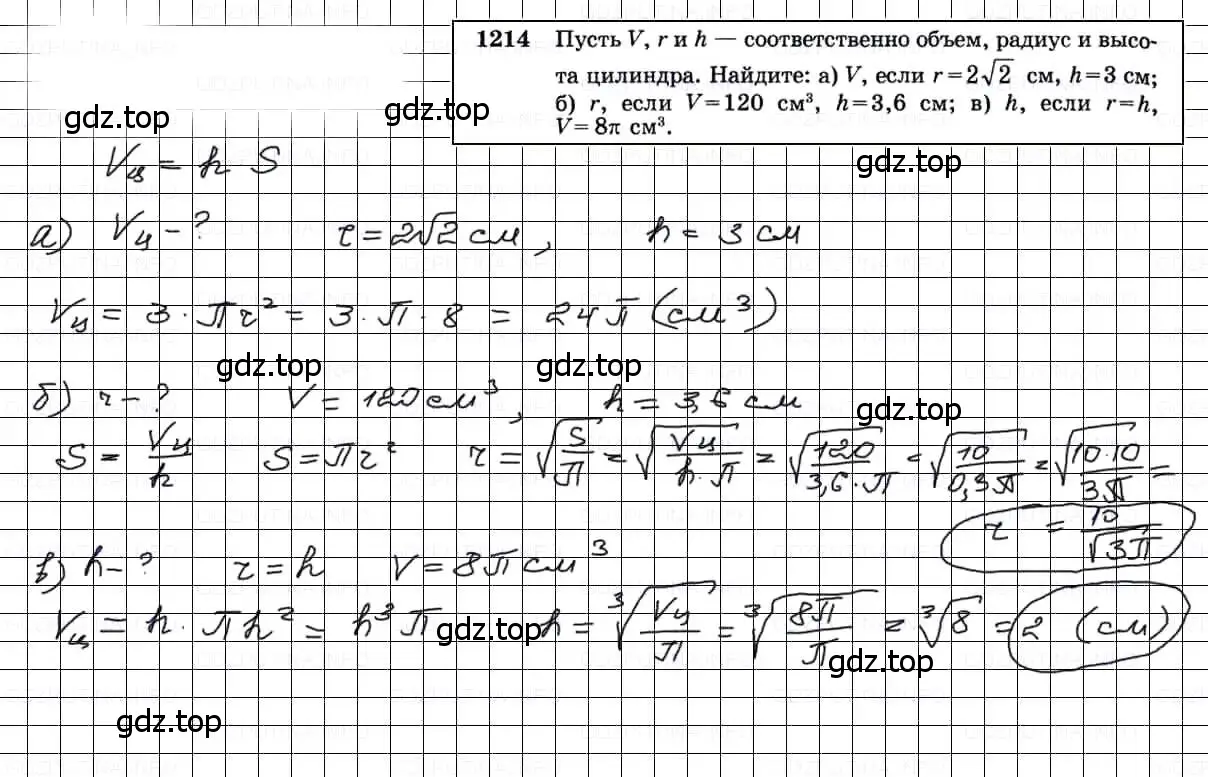 1214 Пусть V, r и h — соответственно объем, радиус и высо-
та цилиндра. Найдите: а) V, если r=2√2 см, h=3 см;
б) r, если V=120 см³, h=3,6 см; в) h, если r=h,
V=8π см³.
gdz.top gdz.top
gdz.top
Vц = h · S
а) Vц – ? r = 2√2 см, h = 3 см
Vц = 3 · πr² = 3 · π · 8 = 24π (см³)
gdz.top gdz.top
б) r – ? V = 120 см³, h = 3,6 см
gdz.top
S = Vц/h S = πr² r = √(S/π) = √(Vц/(h·π)) = √(120/(3,6·π)) = √(10/(0,3π)) = √(10·10/(3π)) =
r = 10/√(3π)
в) h – ? r = h V = 8π см³
Vц = h · πh² = h³π h = ³√(Vц/π) = ³√(8π/π) = ³√8 = 2 (см)
gdz.top gdz.top
gdz.top